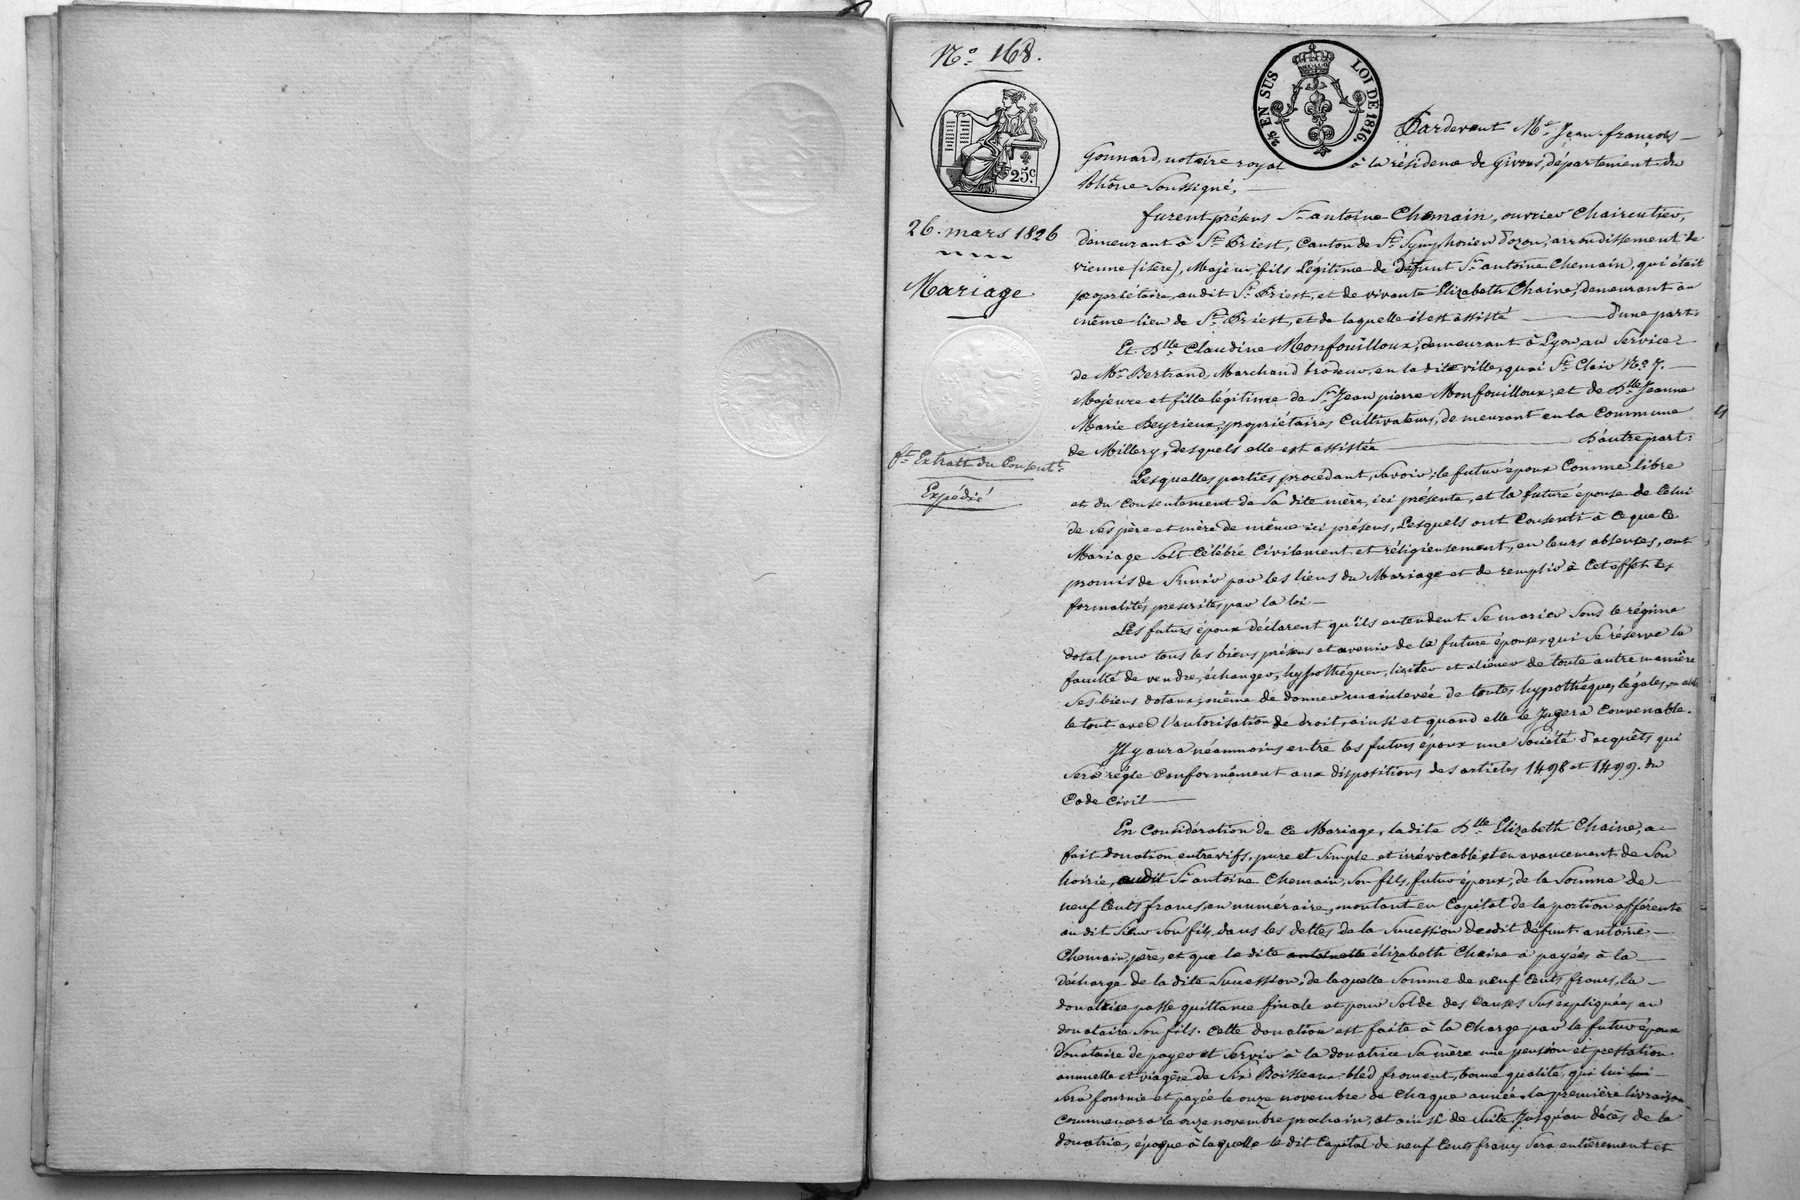 N.° 168.
2/5 EN SUS LOI DE 1816.
25.c
26. mars 1826
Mariage
Extrait du Consent.t
Expédié
Pardevant M.e Jean françois
Gonnard, notaire royal à la résidence de Givors, département du
Rhône Soussigné,
furent présens S.r antoine Chemain, ouvrier Chaircutier,
demeurant à S.t Priest, Canton de S.t Symphorien d'ozon, arrondissement de
vienne (isère), Majeur, fils Légitime de défunt S.r antoine Chemain, qui était
propriétaire, audit S.t Priest, et de vivante Elizabeth Chaine, demeurant au
même lieu de S.t Priest, et de laquelle il est assisté d'une part.
Et D.lle Claudine Monfouilloux, demeurant à Lyon au Service
de M.r Bertrand, Marchand brodeur, en la dite ville, quai S.t Clair N.° 7.
Majeure et fille légitime de S.r Jean pierre Monfouilloux, et de D.lle Jeanne
Marie Beyrieux, propriétaires Cultivateurs, demeurant en la Commune
de Millery, desquels elle est assistée D'autre part:
Lesquelles parties procédant, Savoir, le futur époux Comme libre
et du Consentement de Sa dite mère, ici présente, et la future épouse de Celui
de Ses père et mère de même ici présens, Lesquels ont Consenti à Ce que Ce
Mariage Soit Célébré Civilement et réligieusement, en leurs absenses, ont
promis de S'unir par les liens du Mariage et de remplir à Cet effet les
formalités prescrites par la loi
Les futurs époux déclarent qu'ils entendent Se marier Sous le régime
dotal pour tous les biens présens et avenir de la future épouse, qui Se réserve la
faculté de vendre, échanger, hypothéquer, liciter et aliéner de toute autre manière
Ses biens dotaux, même de donner mainlevée de toutes hypothèques légales,
le tout avec l'autorisation de droit, ainsi et quand elle le Jugera Convenable.
Il y aura néanmoins entre les futurs époux une Société d'acquêts qui
Sera réglé Conformément aux dispositions des articles 1498 et 1499. du
Code Civil
En Considération de Ce Mariage, ladite D.lle Elizabeth Chaine, a
fait donation entrevifs, pure et Simple et irrévocable et en avancement de Son
hoirie, audit S.r antoine Chemain, Son fils, futur époux, de la Somme de
neuf Cents francs en numéraire, montant en Capital de la portion afférente
au dit Sieur Son fils, dans les dettes de la Succession dudit défunt antoine
Chemain, père, et que la dite antoinette élizabeth Chaine a payées à la
décharge de la dite Succession, de laquelle Somme de neuf Cents francs, la
donatrice passe quittance finale et pour Solde des Causes Sus expliquées au
donataire Son fils. Cette donation est faite à la Charge par le futur époux
donataire de payer et Servir à la donatrice Sa mère une pension et prestation
annuelle et viagère de Six Boisseaux bled froment, bonne qualité, qui lui
Sera fournie et payée le onze novembre de Chaque année, la première livraison
Commencera le onze novembre prochain, et ainsi de Suite Jusqu'au décès de la
donatrice, époque à laquelle le dit Capital de neuf Cents francs Sera entièrement et